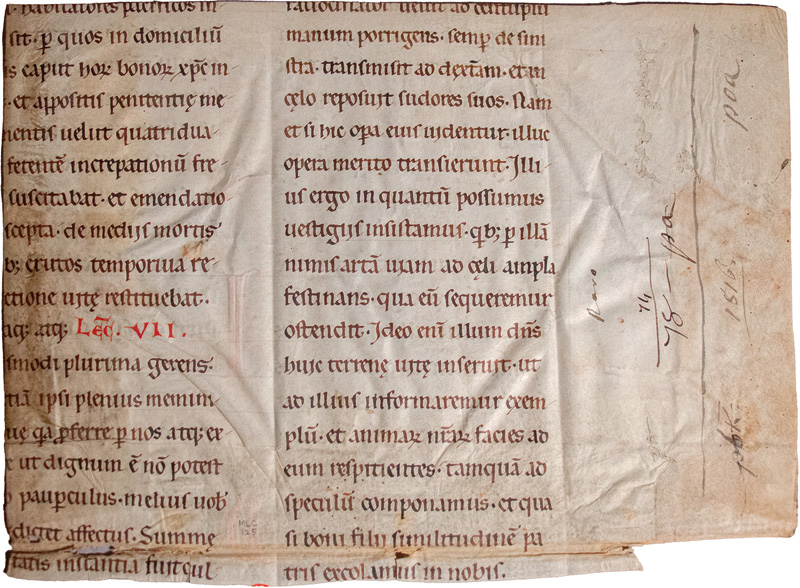 habitatores pacificos in
sit· ꝑ quos in domiciliū
is capiit hoꝝ bonoꝝ xp̄c in
· et appositis penitentię me
mentis uelut quatridua-
fetentē increpationū fre-
suscitabat· et emendatio-
scepta· de medijs mortis
bꝫ erutos temporiua re-
etione uitę restituebat·
aqꝫ atqꝫ Lēc̄. VII.
smodi plurima gerens·
tiā ipsi plenius memin-
uę q̄a p̄ferre ꝑ nos atqꝫ ex-
e ut dignum ē nō potest
paup̄culus· melius uob
diget affectus. Summę
statis instantia fuit cul
ratiocinator uenit ad centupli
manum porrigens· semꝑ de sini
stra· transmisit ad dext̄am· et in
cęlo reposuit sudores suos. Nam
et si hic op̄a eius uidentur· illuc
opera merito transierunt. Illi-
us ergo in quantū possumus
uestigijs insistamus· q̄bꝫ ꝑ illā
nimis artā uiam ad cęli ampla
festinans· qua eū sequeremur
ostendit. Ideo eni illum dn̄s
huic terrenę uitę inseruit· ut
ad illius informaremur exem
plū· et animaꝝ nr̄aꝝ facies ad
eum respitientes· tamquā ad
speculū componamus· et qua
si boni filij similitudinē pa
tris excolamus in nobis.
Raro
74
78 - pa
15163
poa
pbk.
MLC
125